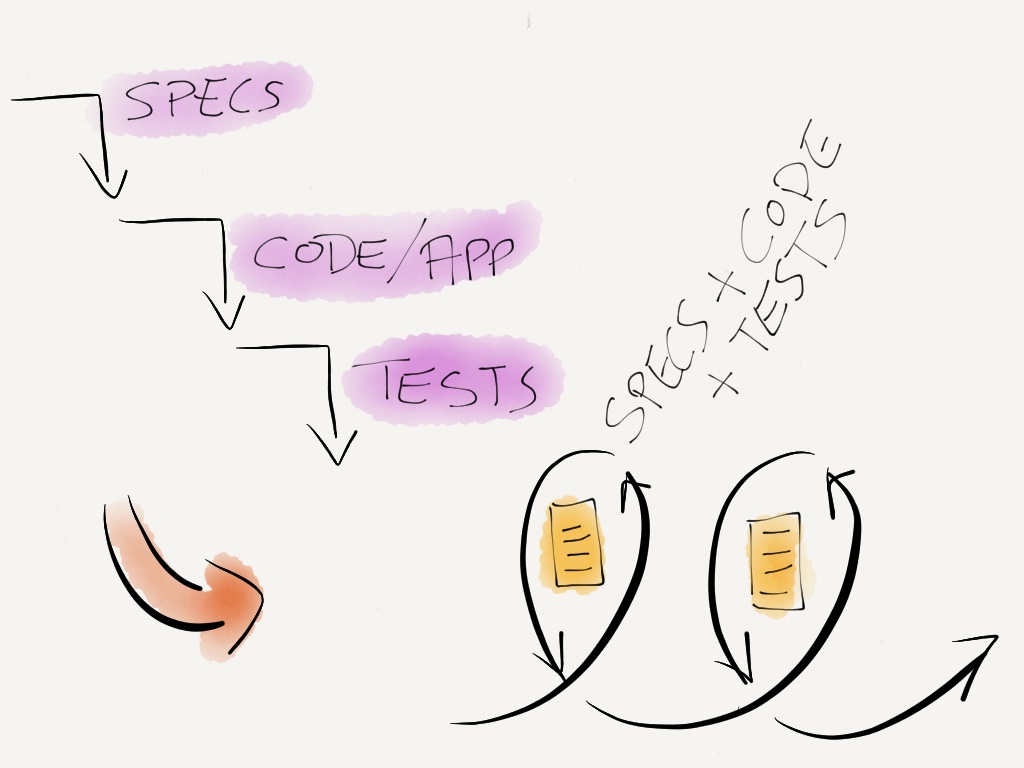 SPECS
CODE/APP
TESTS
SPECS + CODE
+ TESTS